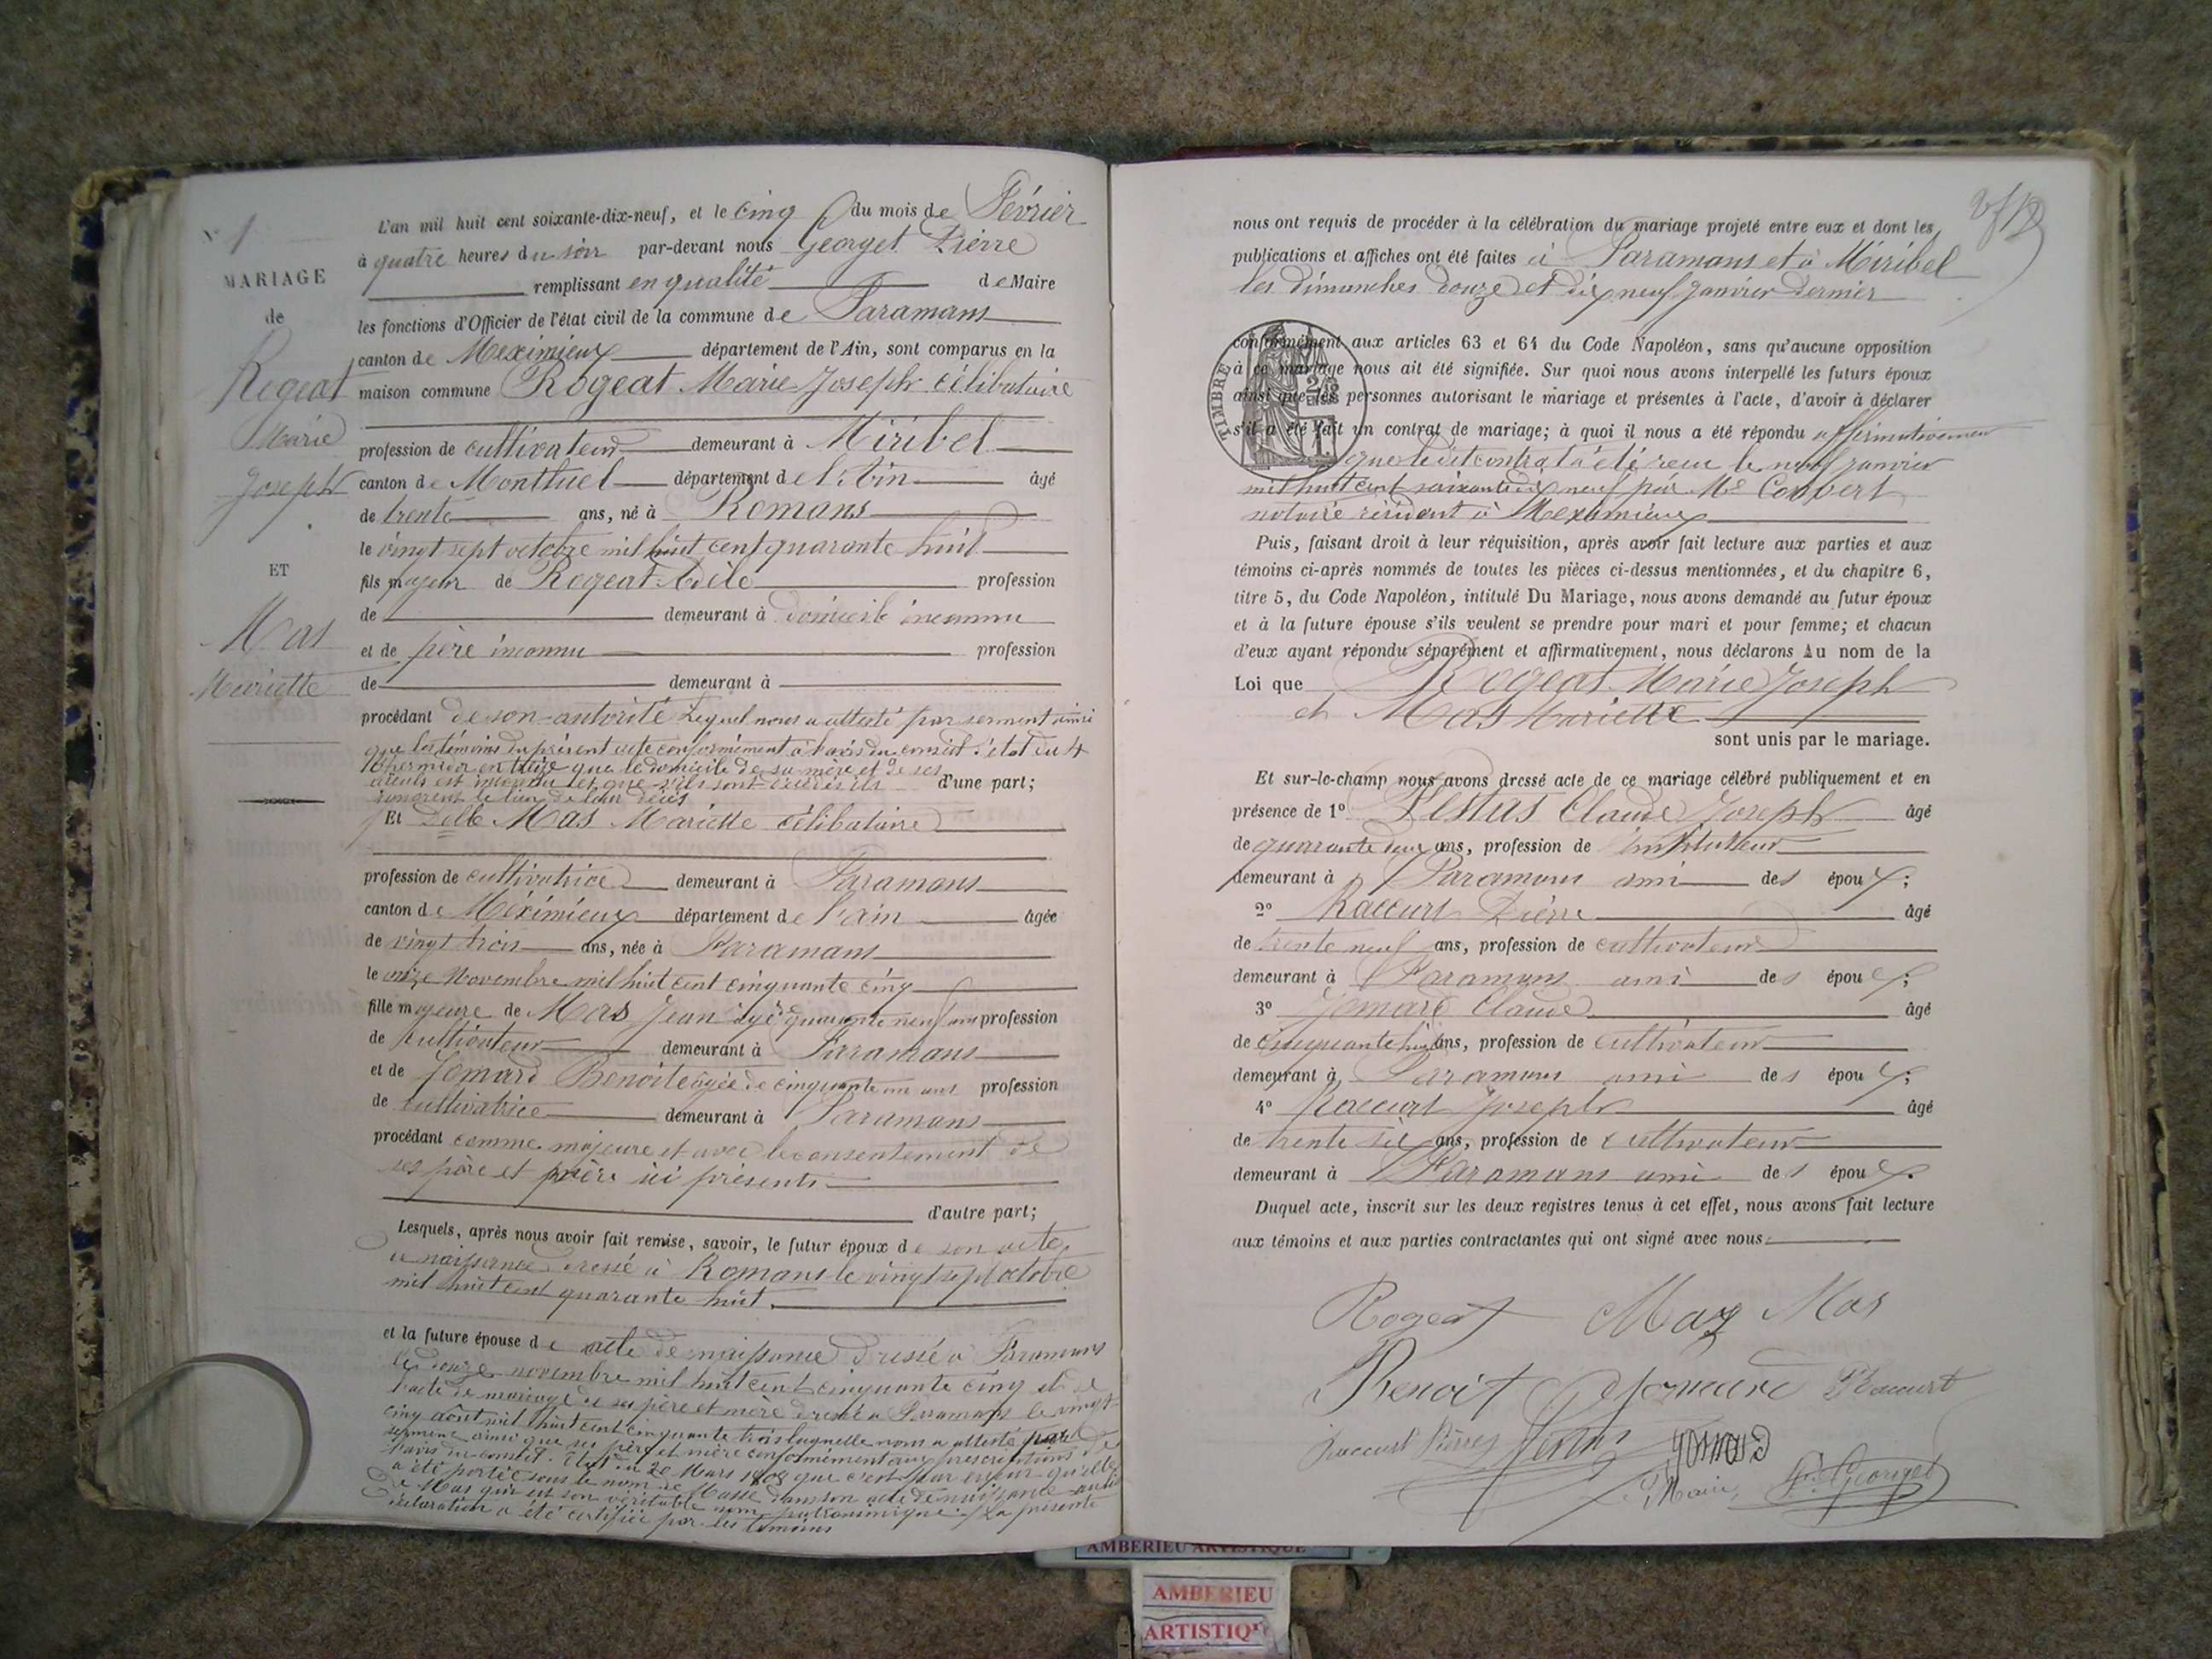 N° 1
MARIAGE
de
Rogeat
Marie
Joseph
ET
Mas
Mariette
L'an mil huit cent soixante-dix-neuf, et le cinq du mois de Février
à quatre heures du soir par-devant nous Georget Pierre
remplissant en qualité de Maire
les fonctions d'Officier de l'état civil de la commune de Faramans
canton de Meximieux département de l'Ain, sont comparus en la
maison commune Rogeat Marie Joseph célibataire
profession de cultivateur demeurant à Miribel
canton de Montluel département de l'Ain âgé
de trente ans, né à Romans
le vingt sept octobre mil huit cent quarante huit
fils majeur de Rogeat profession
de demeurant à domicile inconnu
et de père inconnu profession
de demeurant à
procédant de son autorité Lequel nous a attesté par serment ainsi
que les témoins du présent acte conformément à l'avis du conseil d'état du 4
thermidor an treize que le domicile de sa mère et de ses
aïeuls est inconnu et que s'ils sont décédés ils d'une part;
ignorent le lieu de leur décès
Et Delle Mas Mariette célibataire
profession de cultivatrice demeurant à Faramans
canton de Méximieux département de l'ain âgée
de vingt trois ans, née à Faramans
le onze Novembre mil huit cent cinquante cinq
fille majeure de Mas Jean âgé quarante neuf ans profession
de cultivateur demeurant à Faramans
et de Jomard Benoite âgée de cinquante un ans profession
de cultivatrice demeurant à Faramans
procédant comme majeure et avec le consentement de
ses père et mère ici présents
d'autre part;
Lesquels, après nous avoir fait remise, savoir, le futur époux de son acte
de naissance dressé à Romans le vingt sept octobre
mil huit cent quarante huit.
et la future épouse de acte de naissance dressé à Faramans
le douze novembre mil huit cent cinquante cinq et de
l'acte de mariage de ses père et mère dressé à Faramans le vingt
cinq août mil huit cent cinquante trois laquelle nous a attesté par
serment ainsi que ses père et mère conformément aux prescriptions de
l'avis du conseil d'Etat du 30 Mars 1808 que c'est par erreur qu'elle
a été portée sous le nom de Masse dans son acte de naissance au lieu
de Mas qui est son véritable nom patronimique. La présente
déclaration a été certifiée par les témoins
nous ont requis de procéder à la célébration du mariage projeté entre eux et dont les
publications et affiches ont été faites à Faramans et à Miribel
les dimanches douze et dix neuf Janvier dernier
TIMBRE
conformément aux articles 63 et 64 du Code Napoléon, sans qu'aucune opposition
à ce mariage nous ait été signifiée. Sur quoi nous avons interpellé les futurs époux
ainsi que les personnes autorisant le mariage et présentes à l'acte, d'avoir à déclarer
s'il a été fait un contrat de mariage; à quoi il nous a été répondu affirmativement
que le dit contrat a été recu le neuf janvier
mil huit cent soixante dix neuf par Me
notaire résidant à Meximieux
Puis, faisant droit à leur réquisition, après avoir fait lecture aux parties et aux
témoins ci-après nommés de toutes les pièces ci-dessus mentionnées, et du chapitre 6,
titre 5, du Code Napoléon, intitulé Du Mariage, nous avons demandé au futur époux
et à la future épouse s'ils veulent se prendre pour mari et pour femme; et chacun
d'eux ayant répondu séparément et affirmativement, nous déclarons Au nom de la
Loi que Rogeat Marie Joseph
et Mas Mariette
sont unis par le mariage.
Et sur-le-champ nous avons dressé acte de ce mariage célébré publiquement et en
présence de 1° Claude Joseph âgé
de quarante deux ans, profession de instituteur
demeurant à Faramans ami des époux;
2° Raccurt Pierre âgé
de trente neuf ans, profession de cultivateur
demeurant à Faramans ami des époux;
3° Jomard Claude âgé
de cinquante huit ans, profession de cultivateur
demeurant à Faramans ami des époux;
4° Raccurt Joseph âgé
de trente six ans, profession de cultivateur
demeurant à Faramans ami des époux.
Duquel acte, inscrit sur les deux registres tenus à cet effet, nous avons fait lecture
aux témoins et aux parties contractantes qui ont signé avec nous.
Rogeat Mas Mas
Benoit Jomard Raccurt
Raccurt Pierre Jomard
Maire, Georget
AMBERIEU ARTISTIQUE
AMBERIEU
ARTISTIQ